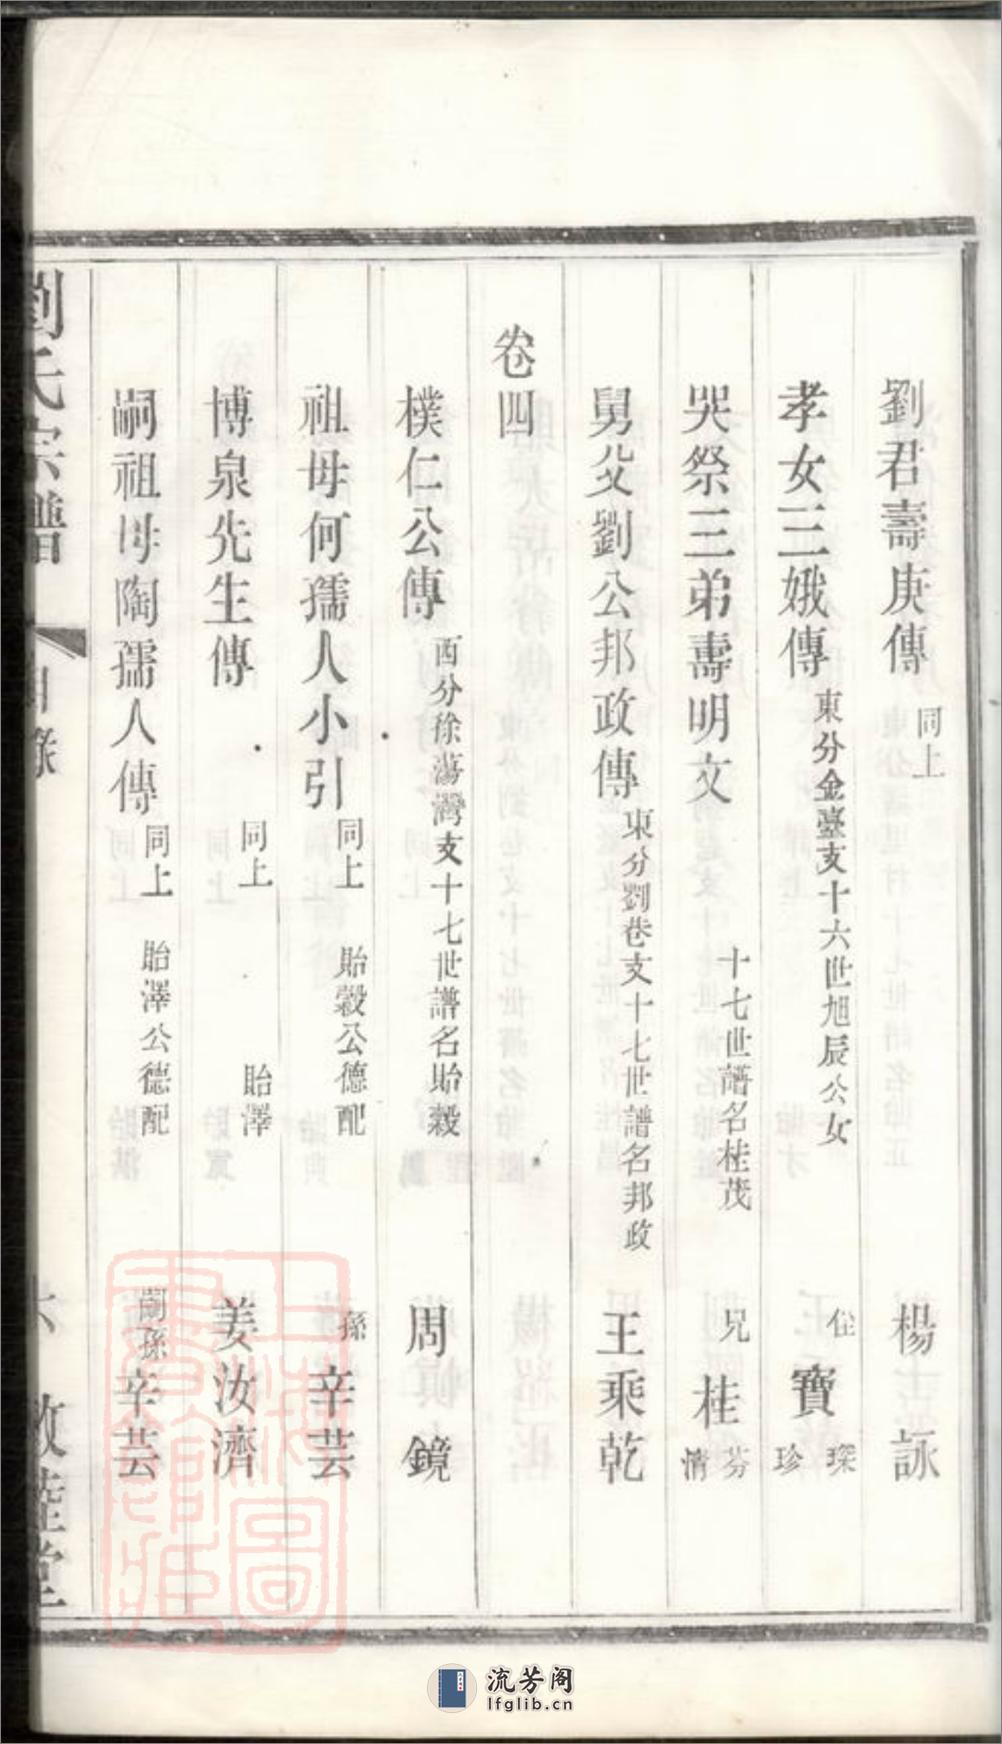 劉君壽庚傳 同上 楊詠
孝女三娥傳 東分金臺支十六世旭辰公女 侄 寶琛 珍
哭祭三弟壽明文 十七世譜名桂茂 兄 桂芬 清
舅父劉公邦政傳 東分劉巷支十七世譜名邦政 王乘乾
卷四
樸仁公傳 西分徐蕩灣支十七世譜名貽穀 周鏡
祖母何孺人小引 同上 貽穀公德配 孫 辛芸
博泉先生傳 同上 貽澤 姜汝濟
嗣祖母陶孺人傳 同上 貽澤公德配 嗣孫 辛芸
劉氏宗譜 目錄 六 敦睦堂
上海圖書館藏
流芳阁
lfglib.cn